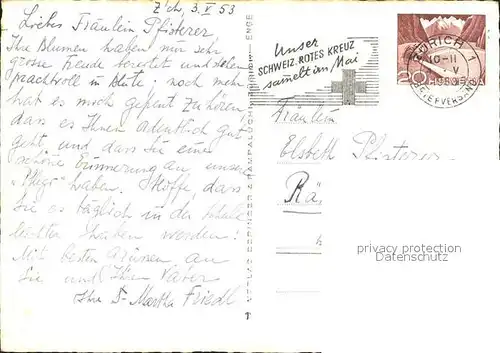 Z'ch, 3. V 53
Liebes Fräulein Pfisterer
Ihre Blumen haben mir sehr
grosse Freude bereitet und stehen
prachtvoll in Blüte; noch mehr
hat es mich gefreut zu hören,
dass es Ihnen ordentlich gut
geht, und dass Sie eine
schöne Erinnerung an unsere
"Pflegi" haben. Hoffe, dass
Sie es täglich in der Schule
leichter haben werden!
Mit besten Grüssen an
Sie und Ihren Vater
Ihre Dr Martha Friedl
Unser
SCHWEIZ. ROTES KREUZ
sammelt im Mai
ZÜRICH 1
10-11
V
BRIEFVERSAND
20
HELVETIA
Fräulein
Elsbeth Pfisterer
Rä
privacy protection
Datenschutz